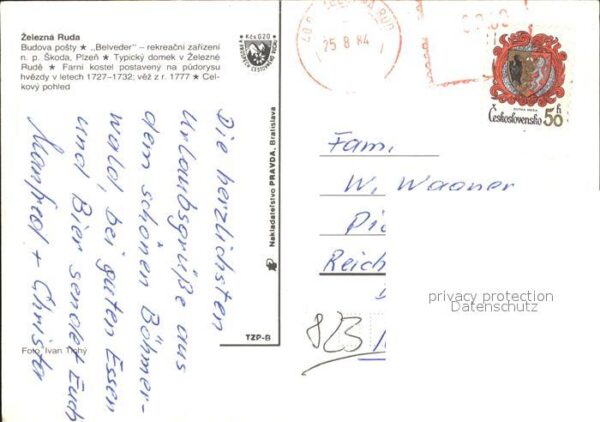 Železná Ruda
Budova pošty ★ „Belveder" – rekreační zařízení
n. p. Škoda, Plzeň ★ Typický domek v Železné
Rudě ★ Farní kostel postavený na půdorysu
hvězdy v letech 1727–1732; věž z r. 1777 ★ Cel-
kový pohled
Kčs 0,20
Die herzlichsten
Urlaubsgrüße aus
dem schönen Böhmer-
wald, bei guten Essen
und Bier sendet Euch
Manfred + Christer
Foto Ivan Tichý
Nakladateľstvo PRAVDA, Bratislava
TZP-B
25 8 84
Československo 50 h
Fam.
W. Wagner
Reich
823
privacy protection
Datenschutz